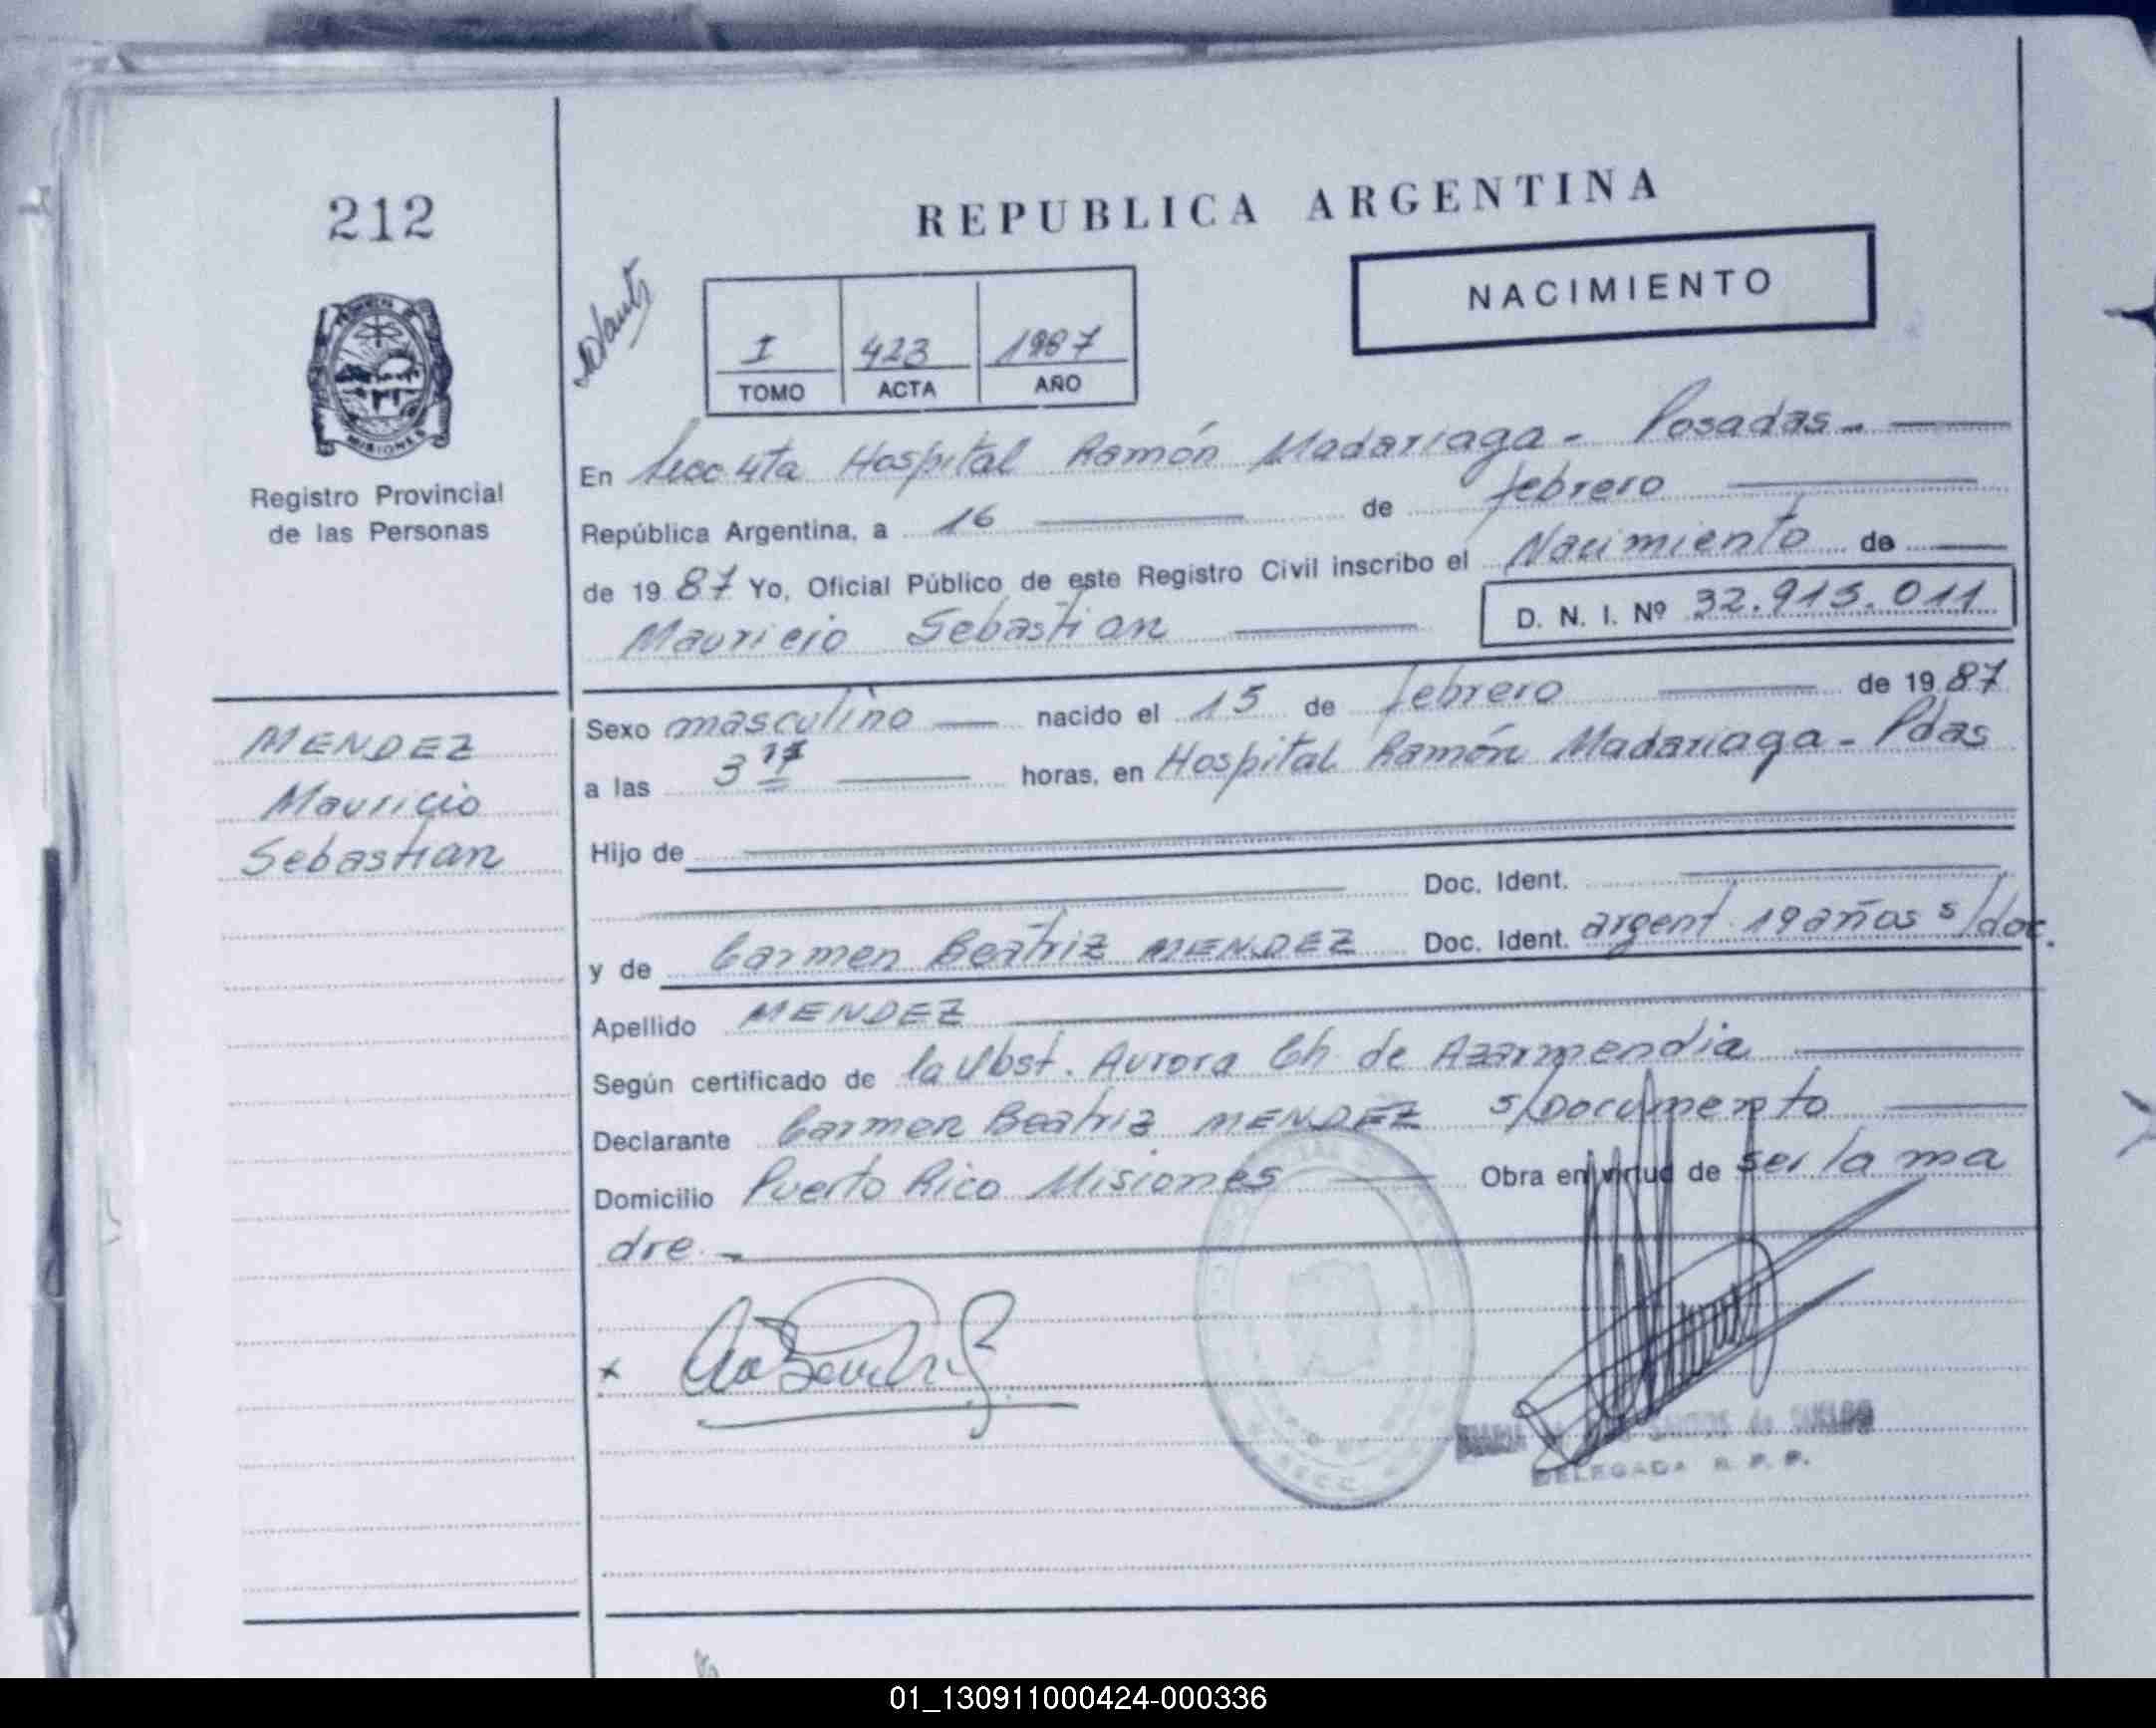 212
REPUBLICA ARGENTINA
NACIMIENTO
I 423 1987
TOMO ACTA AÑO
PROVINCIA DE
MISIONES
Registro Provincial
de las Personas
En Secc 4ta Hospital Ramón Madariaga - Posadas.-
República Argentina, a 16 de febrero
de 19 87 Yo, Oficial Público de este Registro Civil inscribo el Nacimiento de
Mauricio Sebastian D. N. I. Nº 32.915.011
MENDEZ
Mauricio
Sebastian
Sexo masculino nacido el 15 de febrero de 19 87
a las 3 17 horas, en Hospital Ramón Madariaga - Pdas
Hijo de
Doc. Ident.
y de Carmen Beatriz MENDEZ Doc. Ident. argent. 19 años s/doc.
Apellido MENDEZ
Según certificado de la Obst. Aurora Ch. de Azarmendia
Declarante Carmen Beatriz MENDEZ s/Documento
Domicilio Puerto Rico Misiones Obra en virtud de ser la ma
dre.-
x
SANTOS de
DELEGADA R. P. P.
01_130911000424-000336